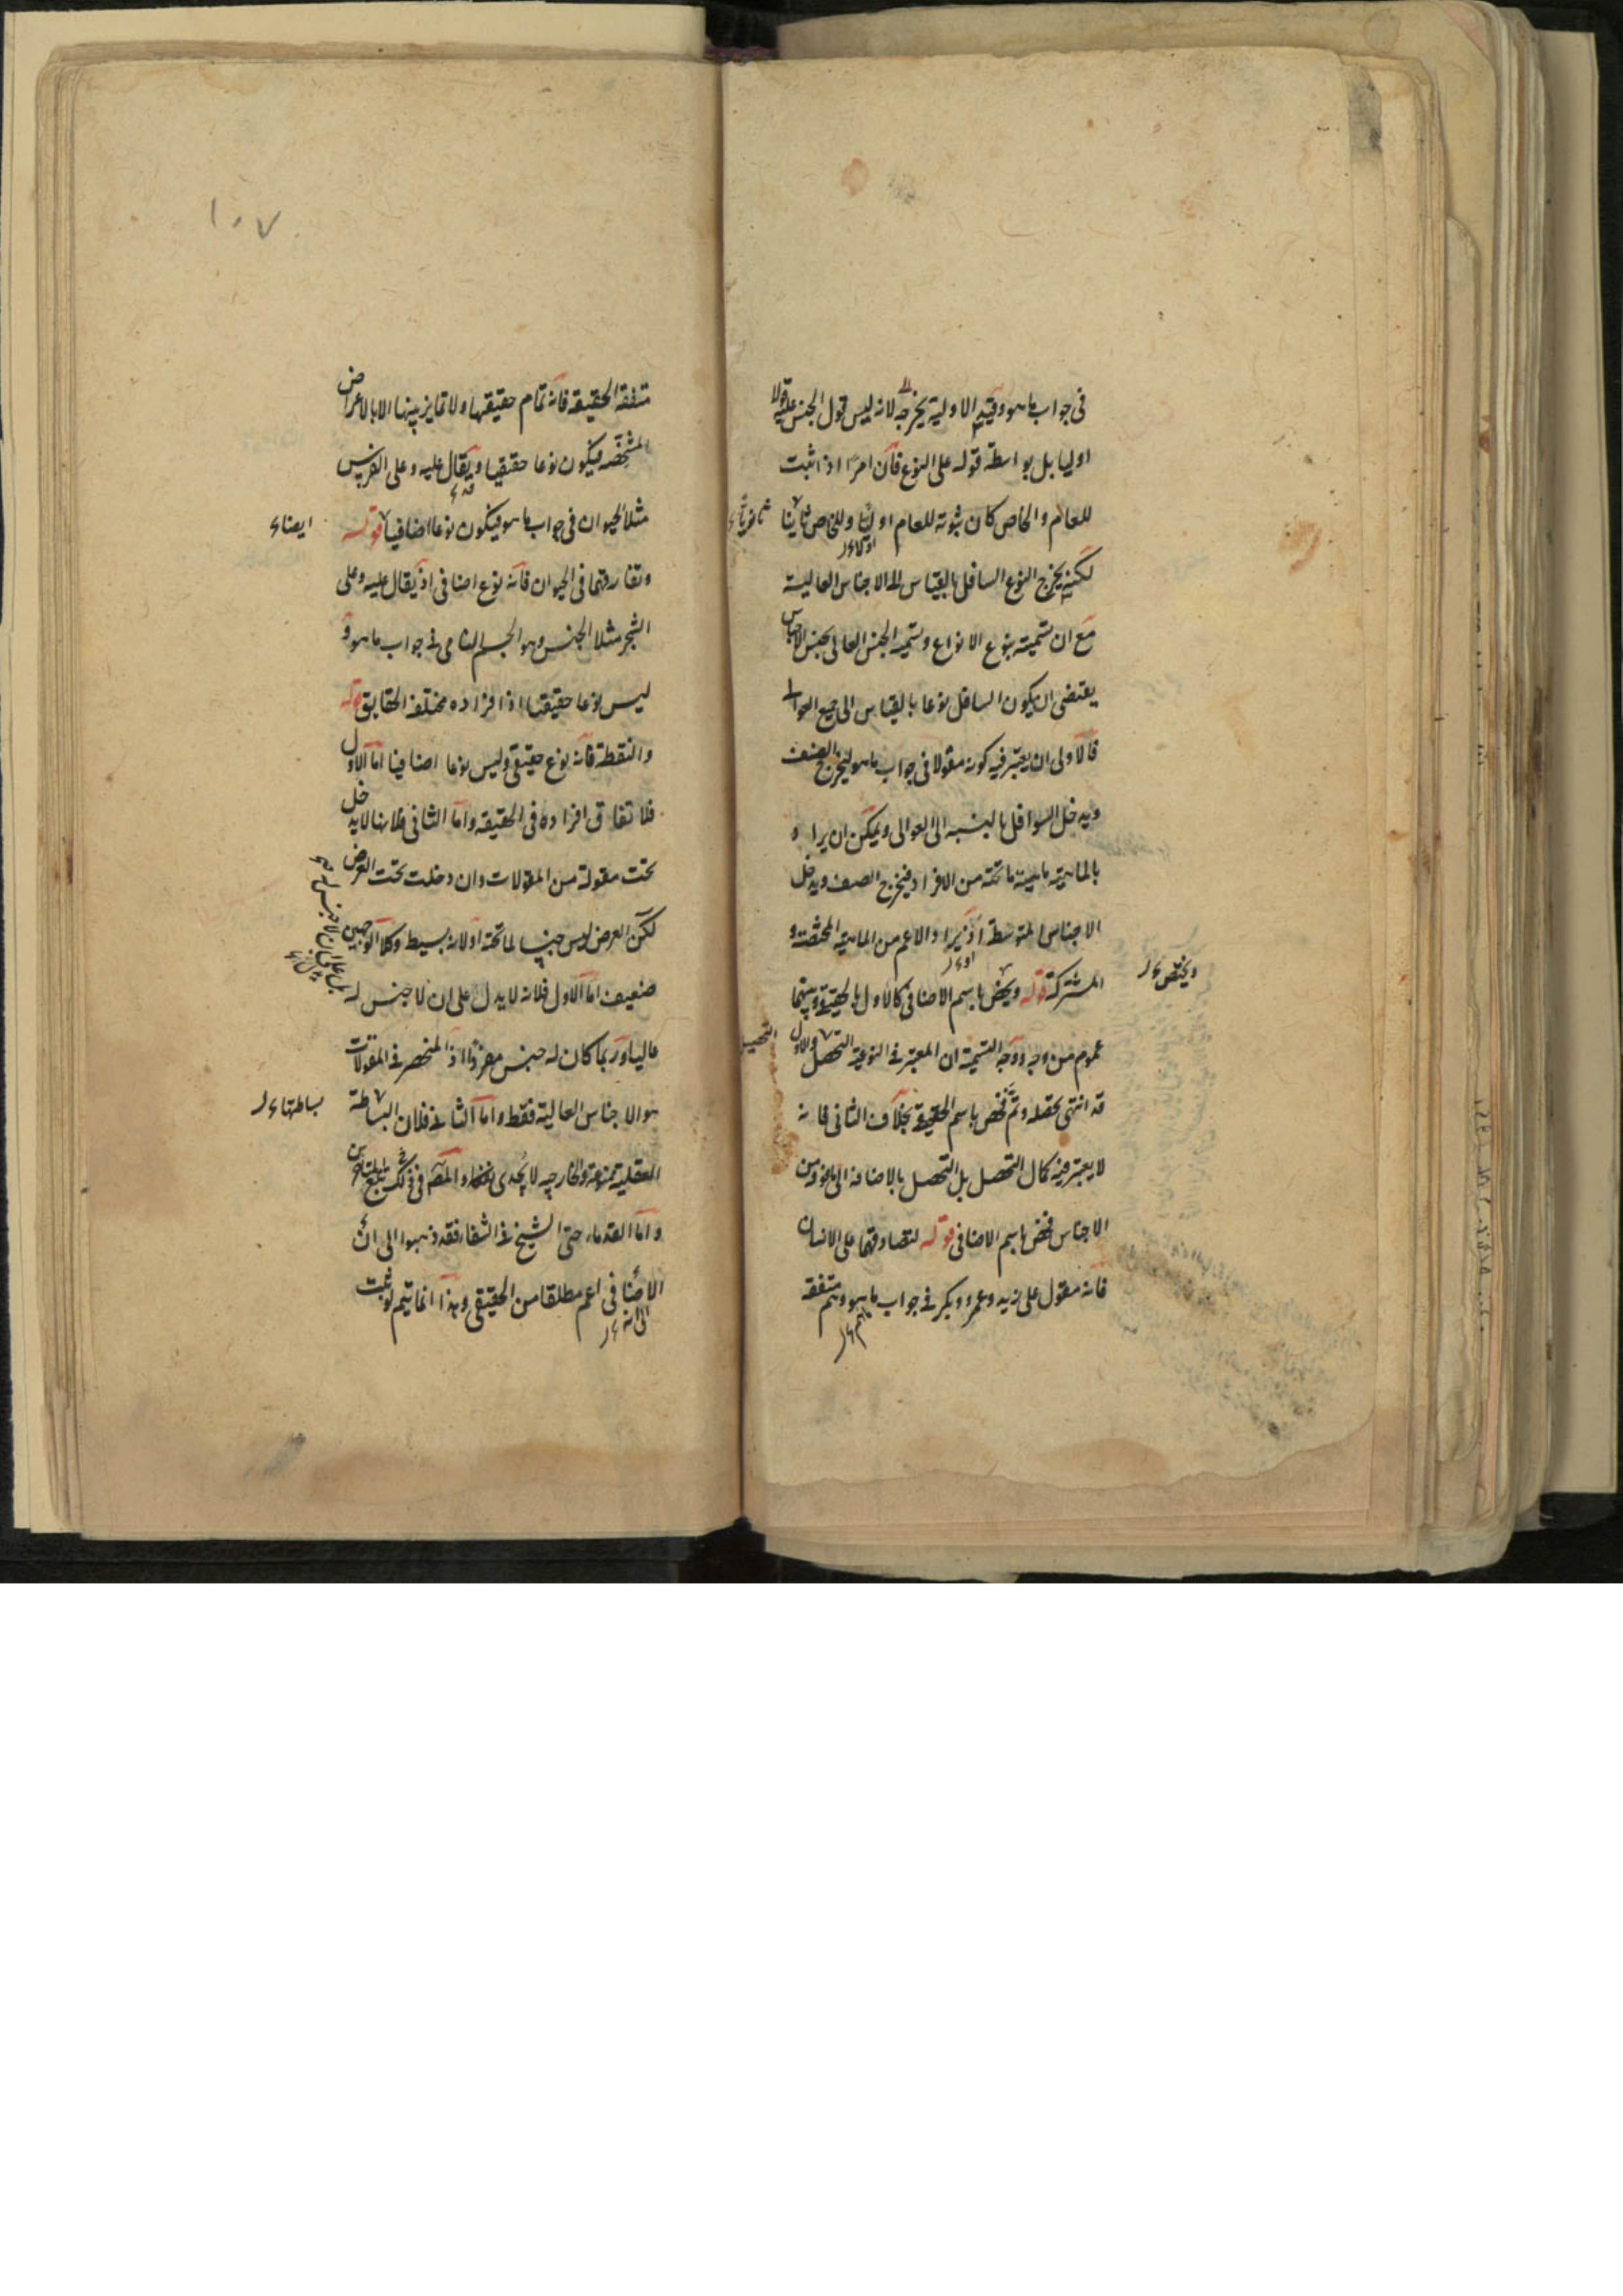 فى جواب ماهو وقيد الاولية يخرجه لانه ليس قول الجنس عليه قولا
اوليا بل بواسطة قوله على النوع فان امرًا اذا ثبت
للعام والخاص كان ثبوته للعام اوليا وللخاص ثانيا
لكنه يخرج النوع السافل بالقياس الى الاجناس العالية
مع ان تسميته بنوع الانواع وتسمية الجنس العالى بجنس الاجناس
يقتضى ان يكون السافل نوعا بالقياس الى جميع العوالى
فالاولى ان يعتبر فيه كونه مقولا فى جواب ماهو ليخرج الصنف
ويدخل السوافل بالنسبه الى العوالى ويمكن ان يراد
بالماهية ماهية ما تحته من الافراد فيخرج الصنف ويدخل
الاجناس المتوسطة اذ يراد الاعم من الماهية المختصة و
المشتركة قوله ويخص باسم الاضافى كالاول بالحقيقى وبينهما
ويختص
عموم من وجه ووجه التسمية ان المعتبر فى النوعية التحصل والاول
التحصيل
قد انتهى تحصله وتم فخص باسم الحقيقى بخلاف الثانى فانه
لا يعتبر فيه كمال التحصل بل التحصل بالاضافة الى ما فوقه من
الاجناس فخص باسم الاضافى قوله لتصادقهما على الانسان
فانه مقول على زيد وعمرو وبكر فى جواب ماهو وهم متفقة
١٠٧
متفقة الحقيقه فانه تمام حقيقتها ولا تمايز بينها الا بالاعراض
المشخصه فيكون نوعا حقيقيا ويقال عليه وعلى الفرس
مثلا الحيوان فى جواب ماهو فيكون نوعا اضافيا قوله
ايضا
وتفارقهما فى الحيوان فانه نوع اضافى اذ يقال عليه وعلى
الشجر مثلا الجنس وهو الجسم النامى فى جواب ماهو و
ليس نوعا حقيقيا اذ افراده مختلفة الحقايق قوله
والنقطة فانه نوع حقيقى وليس نوعا اضافيا اما الاول
فلاتفاق افراده فى الحقيقه واما الثانى فلانها لا يدخل
تحت مقولة من المقولات وان دخلت تحت العرض
لكن العرض ليس جنسا لما تحته اولانه بسيط وكلا الوجهين
ضعيف اما الاول فلانه لا يدل على ان لا جنس له
عاليا وربما كان له جنس مفردا اذ المنحصر فى المقولات
هو الاجناس العالية فقط واما الثانى فلان البساطة
بساطتها
العقلية ممنوعة والخارجيه لا يجدى نفعا والمص فى ذلك
واما القدماء حتى الشيخ فى الشفا فقد ذهبوا الى ان
الاضافى اعم مطلقا من الحقيقى وهذا انما يتم لو ثبت